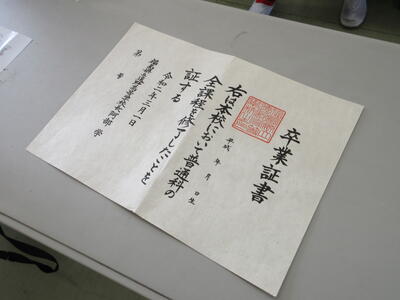 卒業証書
平成 年 月 日生
右は本校において普通科の
全課程を修了したことを
証する
令和二年三月一日
阿部 学
第 号